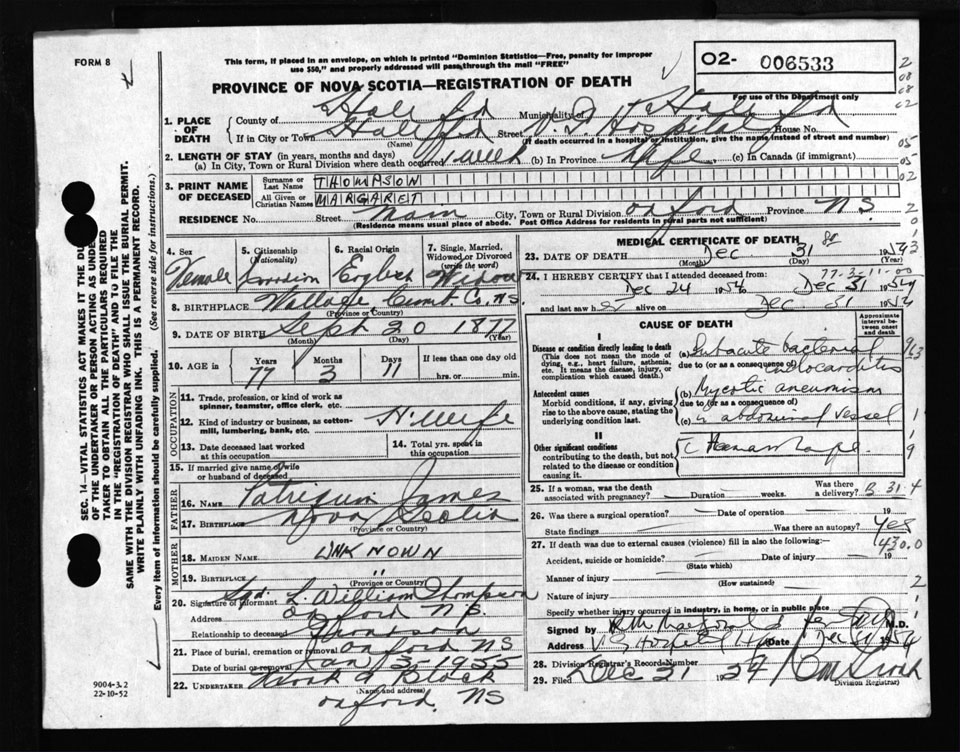 FORM 8
This form, if placed in an envelope, on which is printed "Dominion Statistics—Free, penalty for improper
use $50," and properly addressed will pass through the mail "FREE"
02- 006533
For use of the Department only
PROVINCE OF NOVA SCOTIA—REGISTRATION OF DEATH
1. PLACE OF DEATH
County of Halifax Municipality of Halifax
If in City or Town Halifax Street V. G. Hospital House No.
(Name) (If death occurred in a hospital or institution, give the name instead of street and number)
2. LENGTH OF STAY (in years, months and days)
(a) In City, Town or Rural Division where death occurred 1 week (b) In Province Life (c) In Canada (if immigrant)
3. PRINT NAME OF DECEASED
Surname or Last Name THOMPSON
All Given or Christian Names MARGARET
RESIDENCE No. Street Main City, Town or Rural Division Oxford Province N.S.
(Residence means usual place of abode. Post Office Address for residents in rural parts not sufficient)
4. Sex Female
5. Citizenship (Nationality) Canadian
6. Racial Origin English
7. Single, Married, Widowed or Divorced (write the word) Widow
8. BIRTHPLACE Wallace Cumb. Co. N.S.
(Province or Country)
9. DATE OF BIRTH Sept 20 1877
(Month) (Day) (Year)
10. AGE in Years 77 Months 3 Days 11 If less than one day old hrs. or min.
OCCUPATION
11. Trade, profession, or kind of work as spinner, teamster, office clerk, etc.
12. Kind of industry or business, as cotton-mill, lumbering, bank, etc. H. Wife
13. Date deceased last worked at this occupation
14. Total yrs. spent in this occupation
15. If married give name of wife or husband of deceased
FATHER
16. NAME James
17. BIRTHPLACE Nova Scotia
(Province or Country)
MOTHER
18. MAIDEN NAME UNKNOWN
19. BIRTHPLACE "
(Province or Country)
20. Signature of informant Sgd. L. William Thompson
Address Oxford N.S.
Relationship to deceased
21. Place of burial, cremation or removal Oxford NS
Date of burial or removal Jan 3 - 1955
22. UNDERTAKER Black
(Name and address)
Oxford, NS
MEDICAL CERTIFICATE OF DEATH
23. DATE OF DEATH Dec 31 1954
(Month) (Day) (Year)
77-3-11-00
24. I HEREBY CERTIFY that I attended deceased from:
Dec 24 1954 to Dec 31 1954
and last saw her alive on Dec 31 1954
CAUSE OF DEATH
Approximate interval between onset and death
I
Disease or condition directly leading to death
(This does not mean the mode of dying, e.g., heart failure, asthenia, etc. It means the disease, injury, or complication which caused death.)
(a) Subacute bacterial endocarditis
due to (or as a consequence of)
Antecedent causes
Morbid conditions, if any, giving rise to the above cause, stating the underlying condition last.
(b) Mycotic aneurism
due to (or as a consequence of)
(c) in abdominal vessel
II
Other significant conditions contributing to the death, but not related to the disease or condition causing it.
25. If a woman, was the death associated with pregnancy? Duration weeks. Was there a delivery?
26. Was there a surgical operation? Date of operation 19
State findings Was there an autopsy? Yes
27. If death was due to external causes (violence) fill in also the following: 430.0
Accident, suicide or homicide? Date of injury 19
(State which)
Manner of injury
(How sustained)
Nature of injury
Specify whether injury occurred in industry, in home, or in public place
Signed by M.D.
Address V. G. Hospital Date Dec 1954
28. Division Registrar's Record Number
29. Filed Dec 31 1954
Division Registrar)
SEC. 14—VITAL STATISTICS ACT MAKES IT THE DUTY
OF THE UNDERTAKER OR PERSON ACTING AS UNDERTAKER TO OBTAIN ALL THE PARTICULARS REQUIRED
IN THE "REGISTRATION OF DEATH" AND TO FILE THE
SAME WITH THE DIVISION REGISTRAR WHO SHALL ISSUE THE BURIAL PERMIT.
WRITE PLAINLY WITH UNFADING INK. THIS IS A PERMANENT RECORD.
Every item of information should be carefully supplied. (See reverse side for instructions.)
9004-3.2
22-10-52